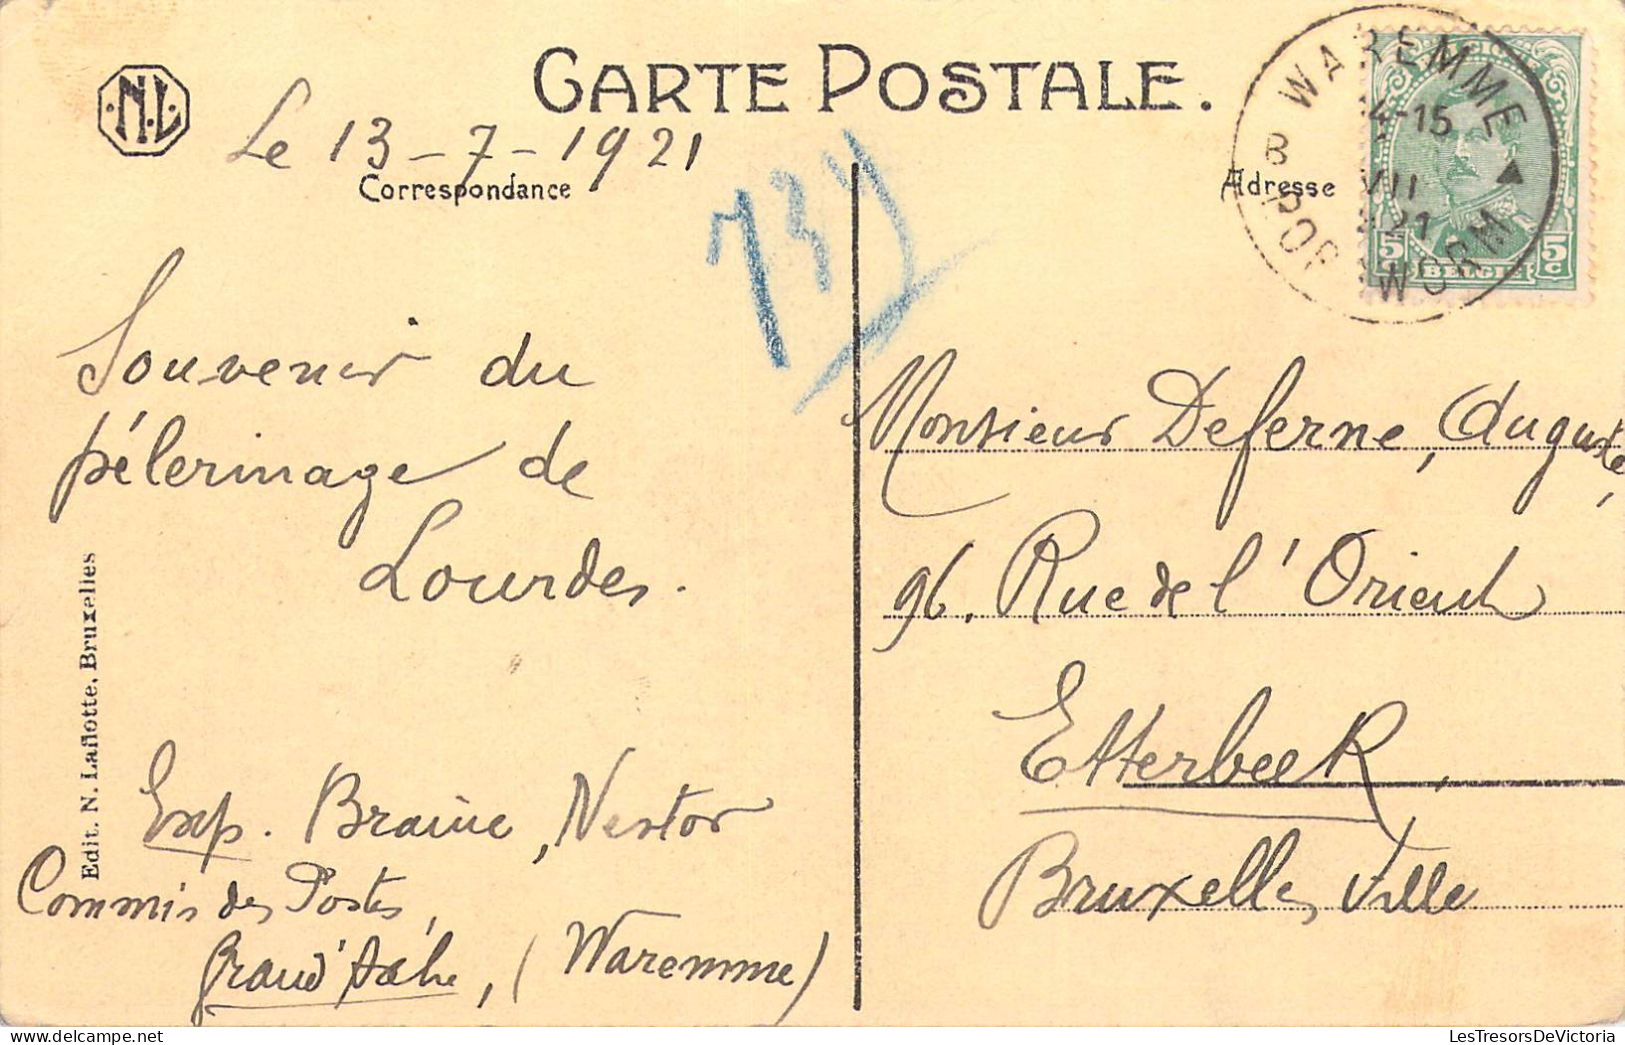 CARTE POSTALE.
N.L.
Le 13-7-1921
Correspondance
Adresse
WAREMME
14-15
VII
1921
B
BORGWORM
5c BELGIE 5c
734
Souvenir du
pélerinage de
Lourdes.
Exp. Braine, Nestor
Commis des Postes,
(Waremme)
Monsieur Deferne, Auguste,
96, Rue de l'Orient
Etterbeek,
Bruxelles, Ville
Edit. N. Laflotte, Bruxelles
LesTresorsDeVictoria.com